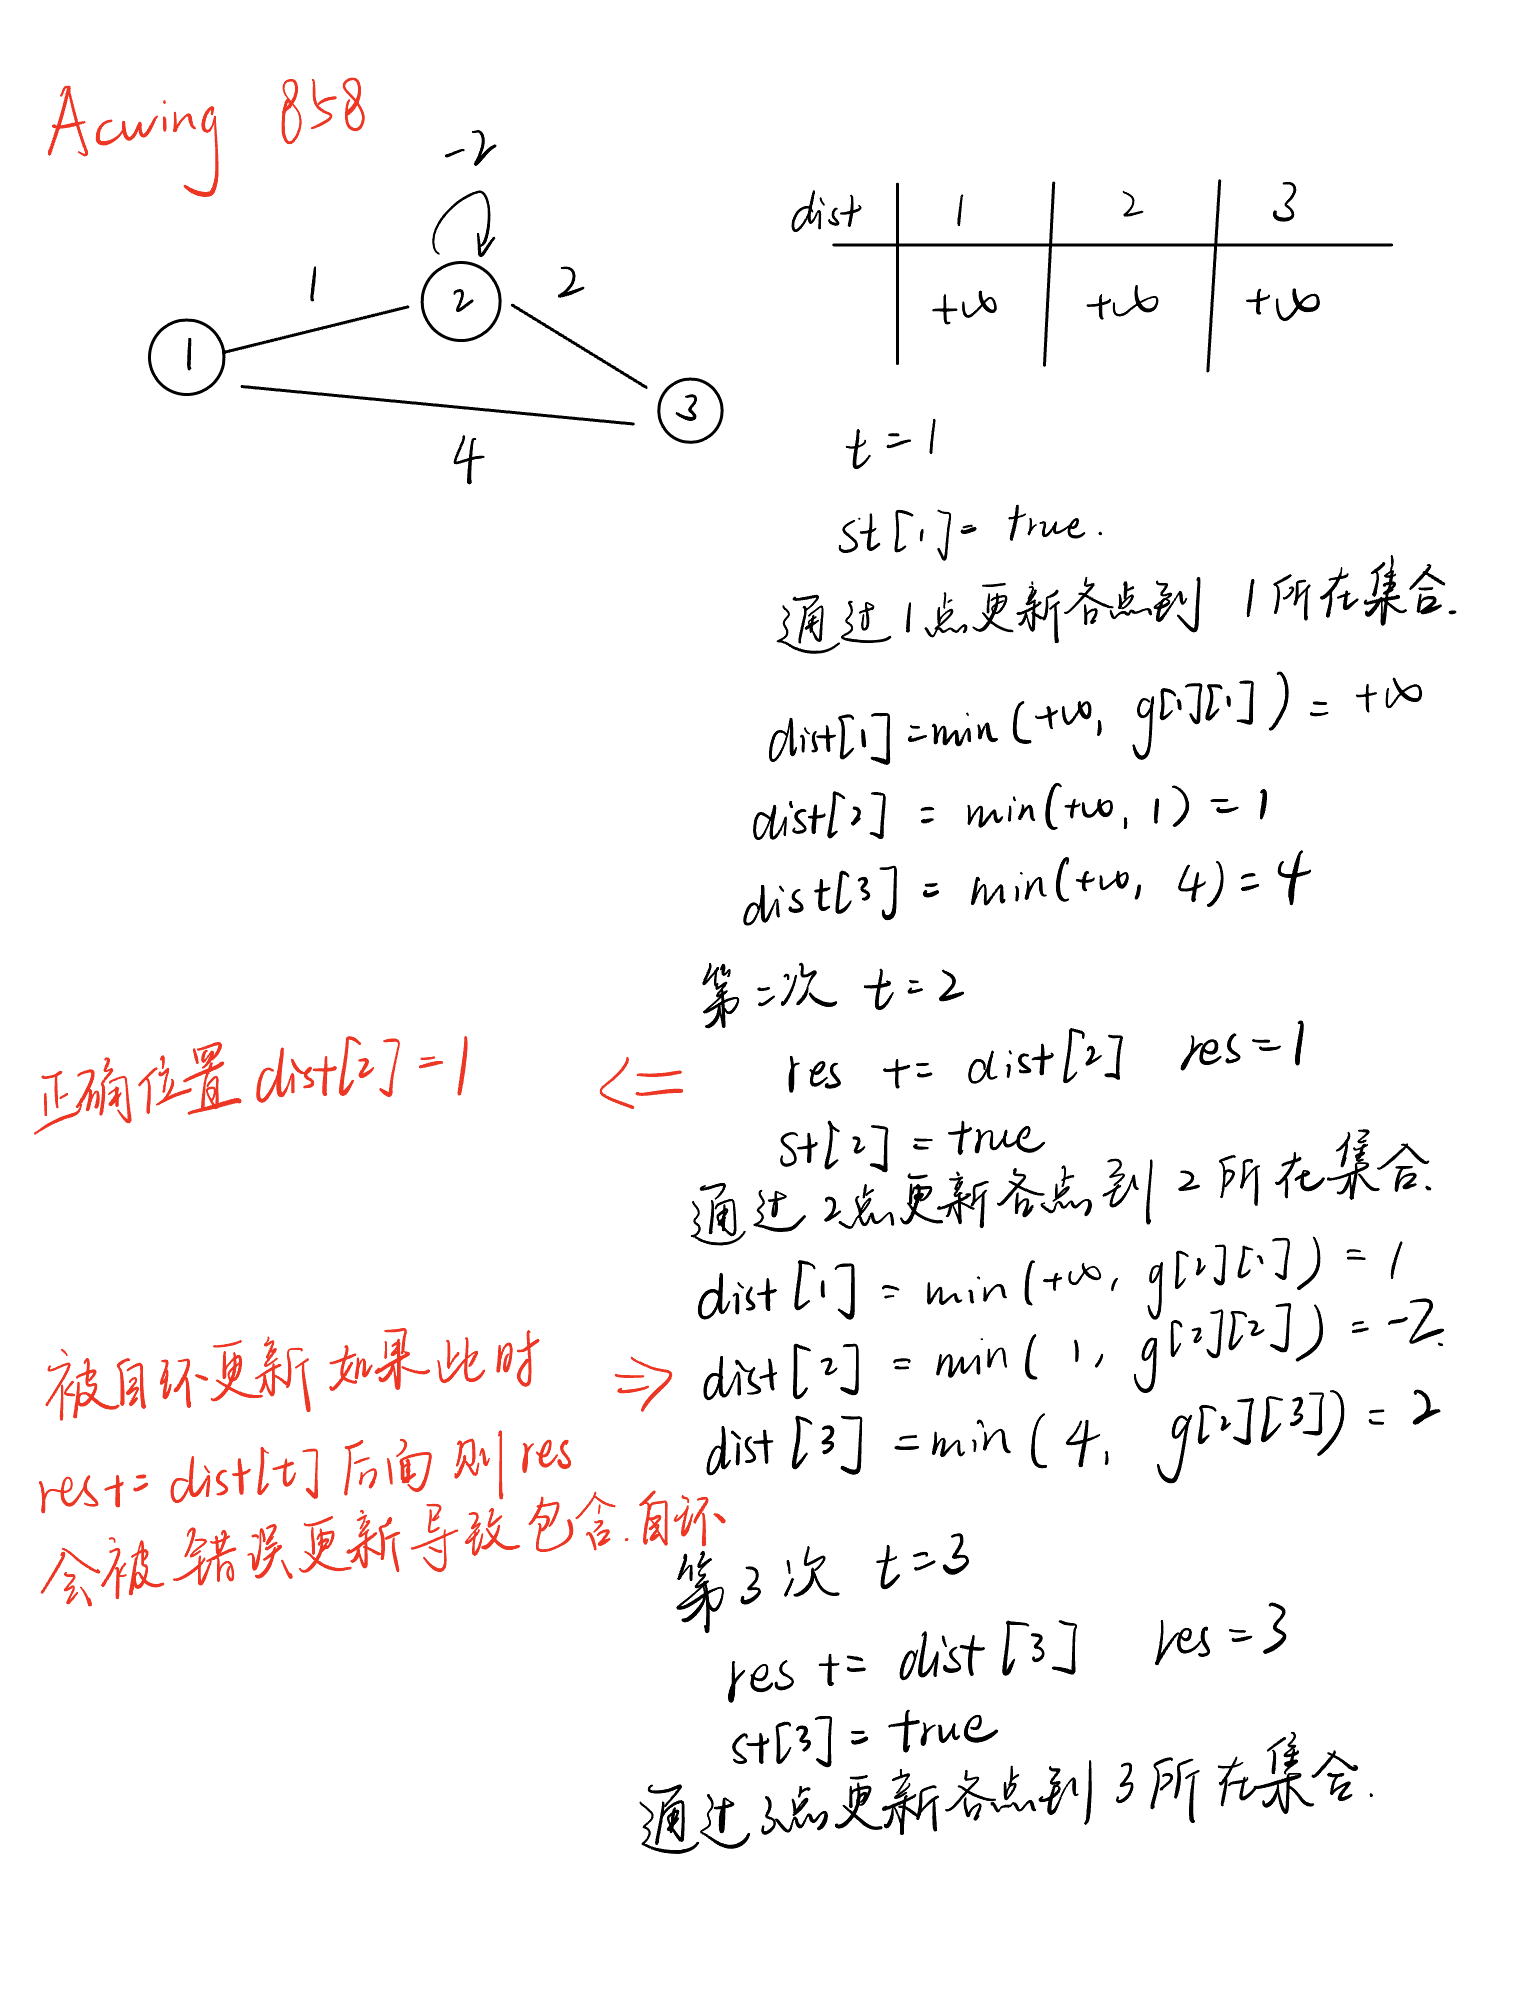 Acwing 858
-2
1
2
2
1
3
4
dist 1 2 3
+∞ +∞ +∞
t=1
st[1]= true.
通过1点更新各点到 1所在集合.
dist[1]=min(+∞, g[1][1])=+∞
dist[2] = min(+∞, 1)=1
dist[3] = min(+∞, 4)=4
第二次 t=2
res += dist[2] res=1
正确位置 dist[2]=1 <=
st[2]=true
通过2点更新各点到2所在集合.
dist[1] = min(+∞, g[2][1])=1
dist[2] = min(1, g[2][2])=-2.
dist[3] =min(4, g[2][3])=2
被自环更新如果此时 =>
res+= dist[t]后面则res
会被错误更新导致包含.自环
第3次 t=3
res += dist[3] res=3
st[3]= true
通过3点更新各点到3所在集合.